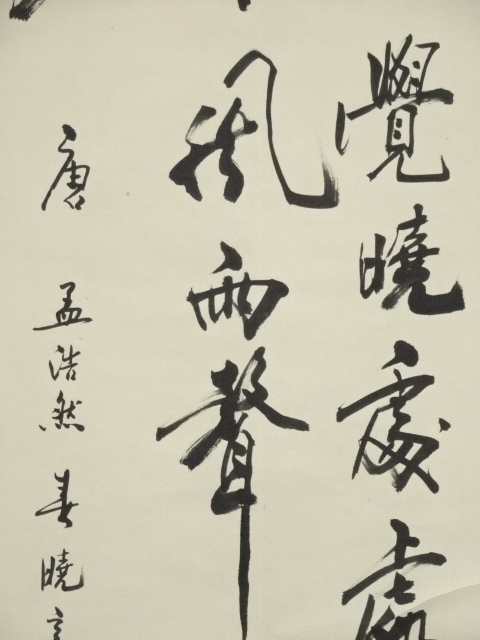 覺曉處
風雨聲
唐 孟浩然 春曉